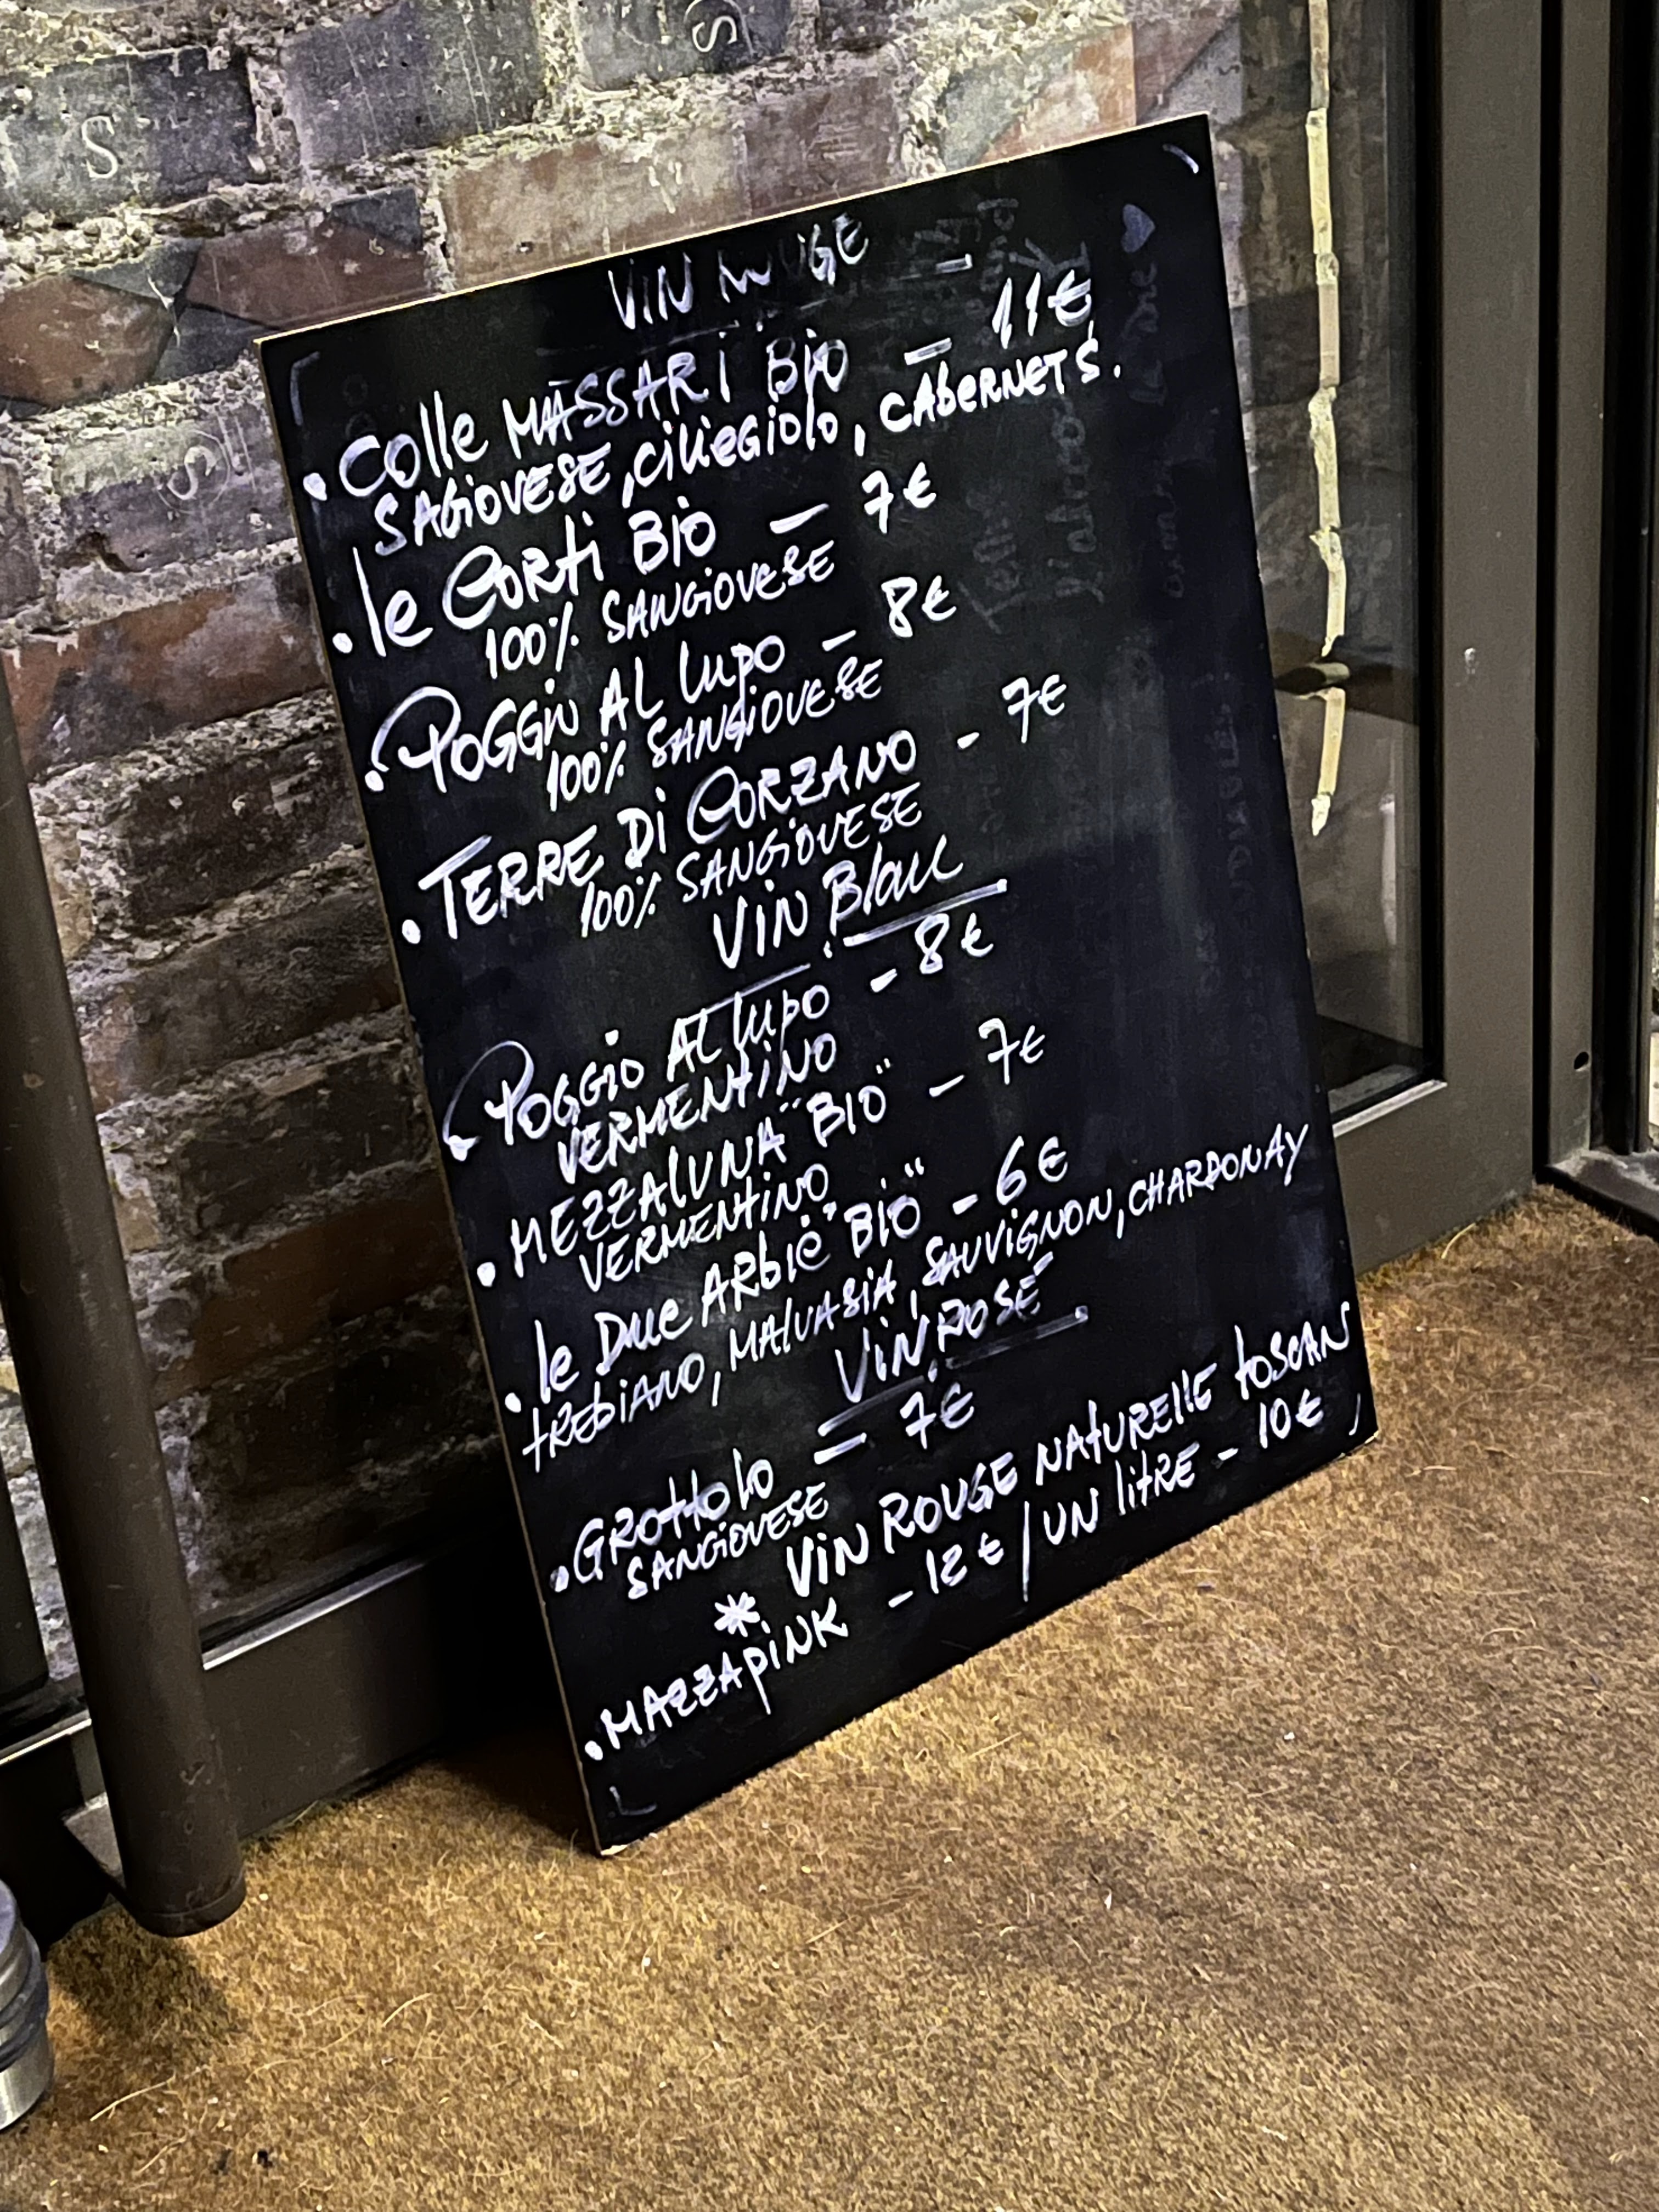 VIN ROUGE
• COLLE MASSARI BIO — 11€
SAGIOVESE, CILIEGIOLO, CABERNETS.
• LE CORTI BIO — 7€
100% SANGIOVESE
• POGGIO AL LUPO — 8€
100% SANGIOVESE
• TERRE DI CORZANO - 7€
100% SANGIOVESE
VIN Blanc
• POGGIO AL LUPO - 8€
VERMENTINO
• MEZZALUNA "BIO" - 7€
VERMENTINO
• le Due ARBIE "BIO" - 6€
TREBIANO, MALVASIA, SAUVIGNON, CHARDONAY
VIN ROSÉ
• GROTTOLO = 7€
SANGIOVESE
* VIN ROUGE NATURELLE TOSCAN
• MAZZAPINK - 12€ / UN LITRE - 10€